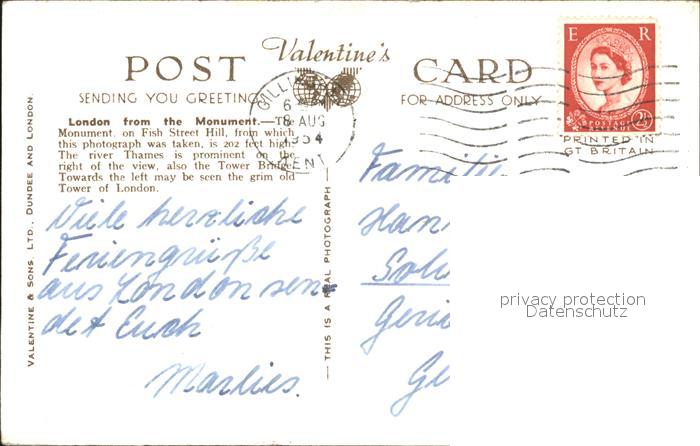 Valentine's
POST CARD
SENDING YOU GREETING
FOR ADDRESS ONLY
E R
POSTAGE
REVENUE
2½
PRINTED IN
GT BRITAIN
6
8 AUG
1954
KENT
London from the Monument.—The
Monument, on Fish Street Hill, from which
this photograph was taken, is 202 feet high.
The river Thames is prominent on the
right of the view, also the Tower Bridge.
Towards the left may be seen the grim old
Tower of London.
Viele herzliche
Feriengrüße
aus London sen-
det Euch
Marlies.
VALENTINE & SONS, LTD., DUNDEE AND LONDON.
— THIS IS A REAL PHOTOGRAPH —
Famili
Han
Soli
Geri
Gl
privacy protection
Datenschutz